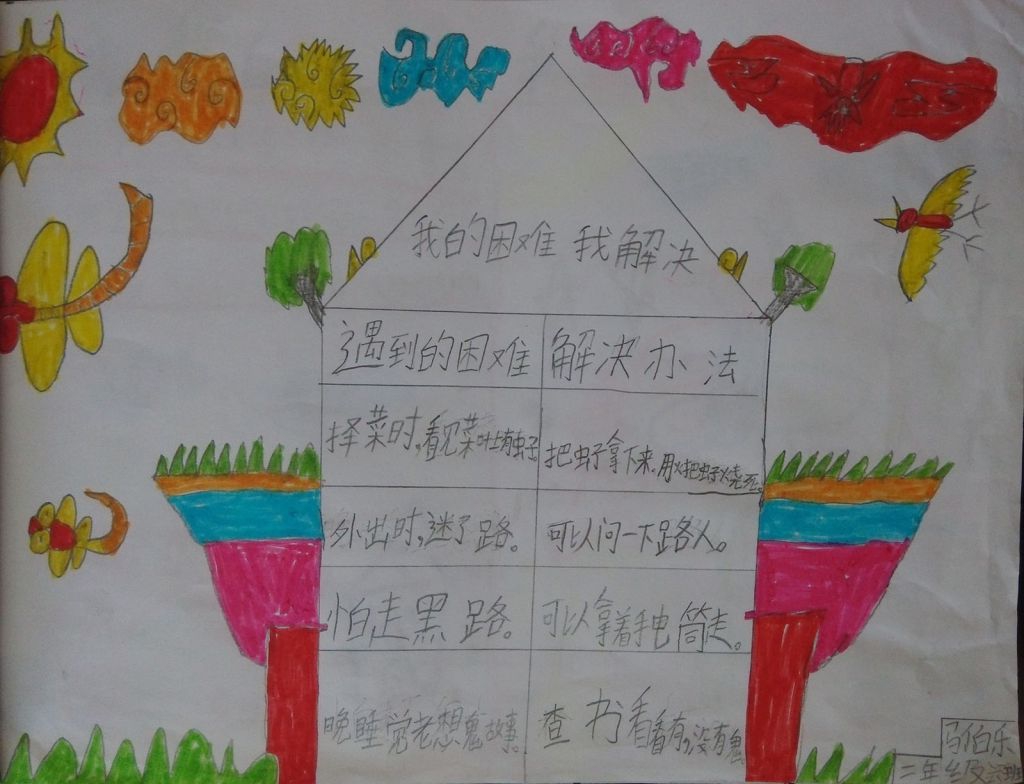 我的困难 我解决
遇到的困难 解决办法
择菜时,看见菜吐有虫子。 把虫子拿下来,用火把虫子烧死。
外出时,迷了路。 可以问一下路人。
怕走黑路。 可以拿着手电筒走。
晚睡觉老想鬼故事。 查书看看有没有鬼。
马伯乐
二年4及 班